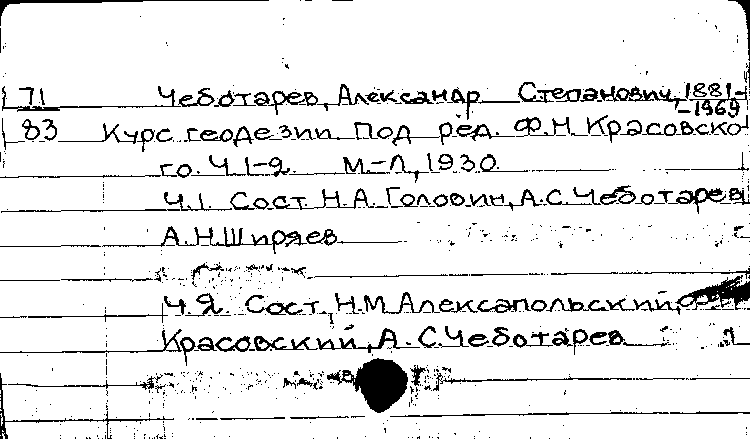 71 Чеботарев, Александр Степанович, 1881-
-1969
83 Курс геодезии. Под ред. Ф.Н. Красовско-
го. Ч.1-2. М.-Л., 1930.
Ч.1. Сост. Н.А. Головин, А.С. Чеботарев,
А.Н. Ширяев.
Ч.2. Сост. Н.М. Алексапольский,
Красовский, А.С. Чеботарев.